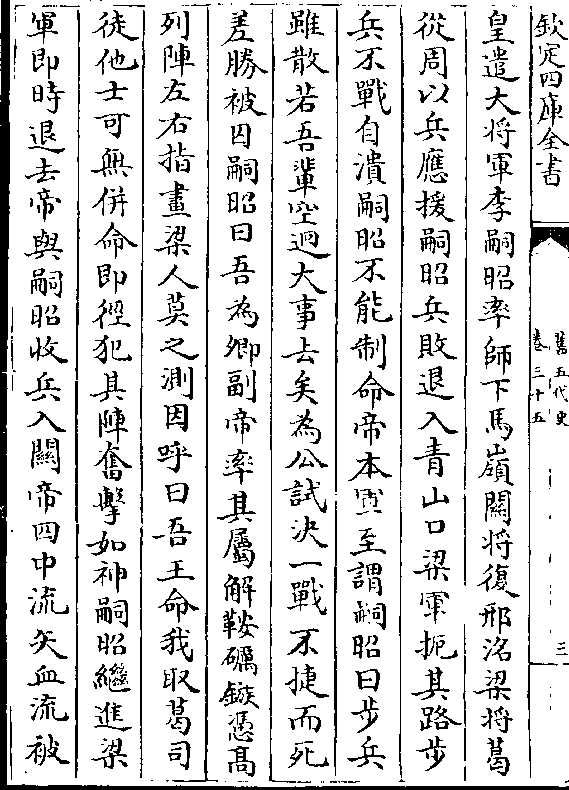 欽定四庫全書
舊五代史
卷三十五
三
皇遣大将軍李嗣昭率師下馬嶺關将復邢洺梁将葛
從周以兵應援嗣昭兵敗退入青山口梁軍扼其路步
兵不戰自潰嗣昭不能制命帝本軍至謂嗣昭曰步兵
雖散若吾輩空迴大事去矣為公試決一戰不捷而死
差勝被囚嗣昭曰吾為卿副帝率其屬解鞍礪鏃憑髙
列陣左右指畫梁人莫之測因呼曰吾王命我取葛司
徒他士可無併命即徑犯其陣奮擊如神嗣昭繼進梁
軍即時退去帝與嗣昭收兵入關帝四中流矢血流被